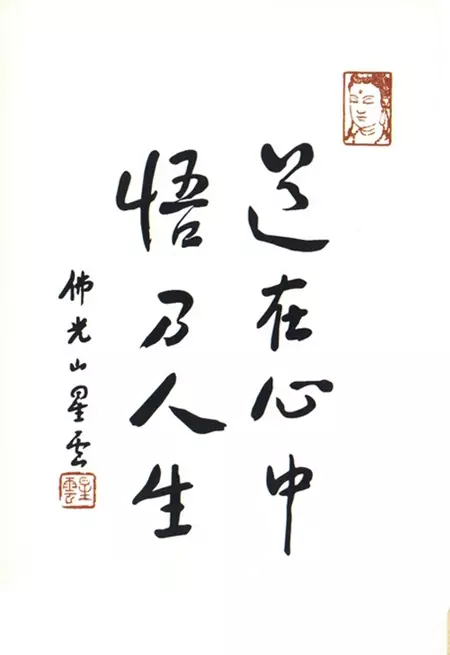 道在心中
悟乃人生
佛光山星雲
星雲